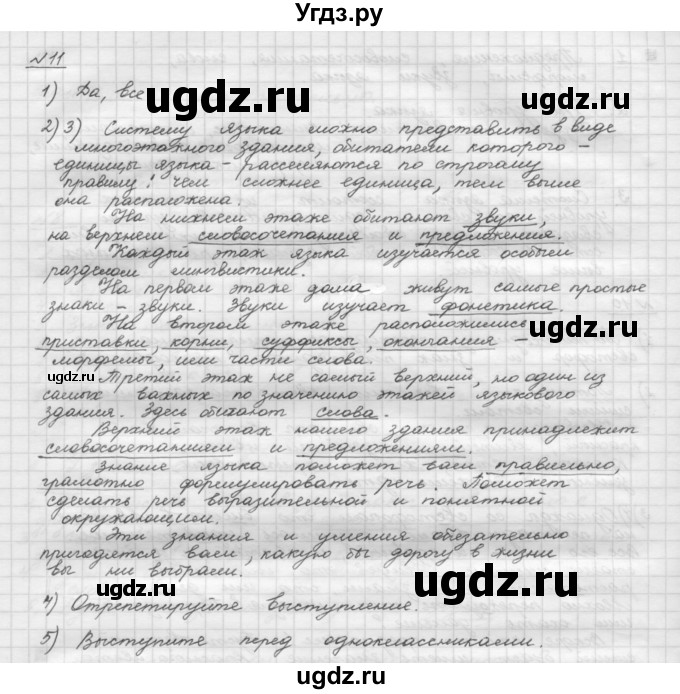 Угдз.ру
№11
1) Да, все
ugdz.ru
ugdz.ru
2) 3) Систему языка можно представить в виде
многоэтажного здания, обитатели которого –
единицы языка – расселяются по строгому
правилу: чем сложнее единица, тем выше
она расположена.
На нижнем этаже обитают звуки,
на верхнем словосочетания и предложения.
Каждый этаж языка изучается особым
разделом лингвистики.
На первом этаже дома живут самые простые
знаки – звуки. Звуки изучает фонетика.
На втором этаже расположились
приставки, корни, суффиксы, окончания –
морфемы, или части слова.
ugdz.ru
ugdz.ru
Третий этаж не самый верхний, но один из
самых важных по значению этажей языкового
здания. Здесь обитают слова.
Верхний этаж нашего здания принадлежит
словосочетаниям и предложениям.
Знание языка поможет вам правильно,
грамотно формулировать речь. Поможет
сделать речь выразительной и понятной
окружающим.
ugdz.ru
ugdz.ru
Эти знания и умения обязательно
пригодятся вам, какую бы дорогу в жизни
вы ни выбрали.
4) Отрепетируйте выступление.
5) Выступите перед одноклассниками.
ugdz.ru
ugdz.ru